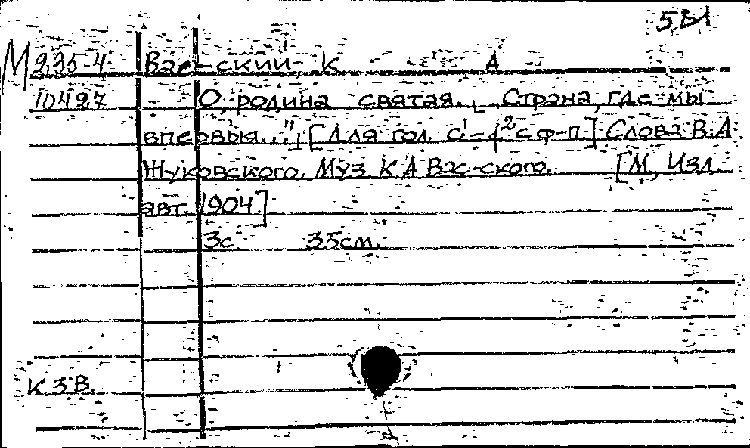 5Б1
М 235-4 Вас-ский К А
10427 О родина святая. „Страна, где мы
впервыя...", [Для гол. с' - f² с ф-п] Слова В. А.
Жуковского. Муз К А Вас-ского. [М, Изд.
авт. 1904]
3с. 35см.
К З В.